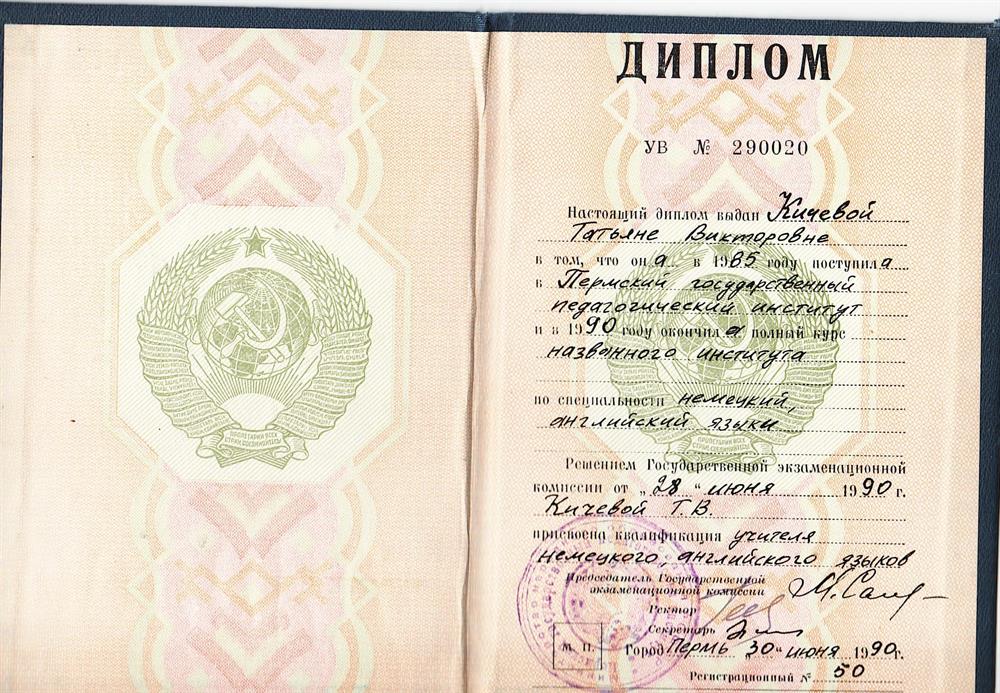 ПРОЛЕТАРИИ ВСЕХ
СТРАН, СОЕДИНЯЙТЕСЬ!
ДИПЛОМ
УВ № 290020
Настоящий диплом выдан Кичевой
Татьяне Викторовне
в том, что он а в 1985 году поступил а
в Пермский государственный
педагогический институт
и в 1990 году окончил а полный курс
названного института
по специальности немецкий,
английский языки
ПРОЛЕТАРИИ ВСЕХ
СТРАН, СОЕДИНЯЙТЕСЬ!
Решением Государственной экзаменационной
комиссии от „28" июня 1990 г.
Кичевой Т.В.
присвоена квалификация учителя
немецкого, английского языков
Председатель Государственной
экзаменационной комиссии
Ректор
Секретарь
М. П. Город Пермь „30" июня 1990 г.
Регистрационный № 50